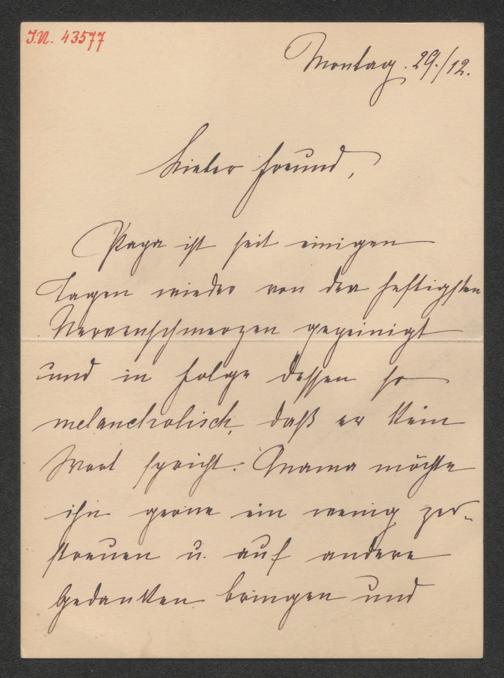 J.N. 43577
Montag. 29./12.
Lieber Freund,
Papa ist seit einigen
Tagen wieder von den heftigsten
Nervenschmerzen gepeinigt
und in Folge dessen so
melancholisch, daß er kein
Wort spricht. Mama möchte
ihn gerne ein wenig zer-
streuen u. auf andere
Gedanken bringen und